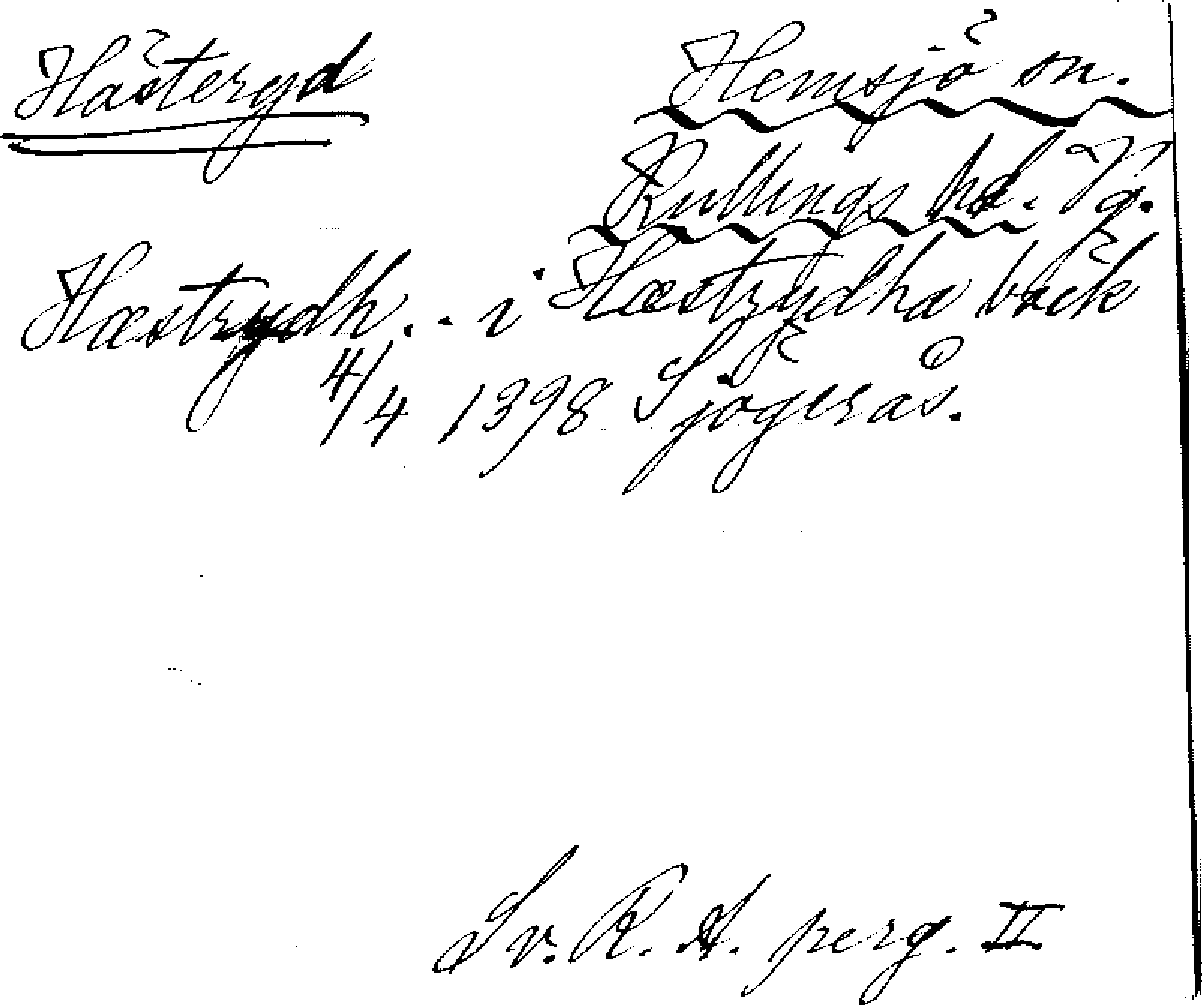 Hästeryd
Hemsjö sn.
Kullings hd. Vg.
Hæstrydh. . i Hæstrydha bäck
4/4 1398 Sjögerås.
Sv. R. A. perg. II